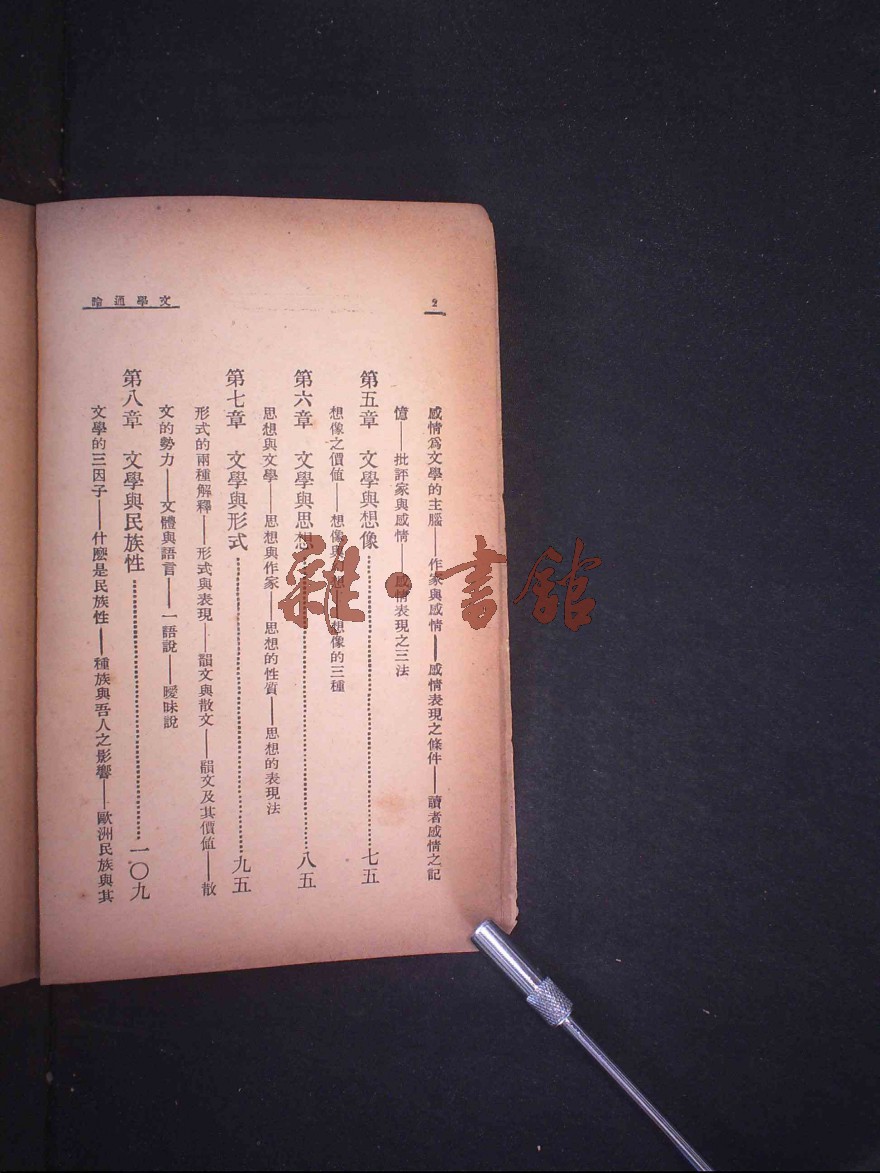 2
文學通論
感情爲文學的主腦——作家與感情——感情表現之條件——讀者感情之記
憶——批評家與感情——感情表現之三法
第五章 文學與想像…………七五
想像之價値——想像與——想像的三種
第六章 文學與思想…………八五
思想與文學——思想與作家——思想的性質——思想的表現法
第七章 文學與形式…………九五
形式的兩種解釋——形式與表現——韻文與散文——韻文及其價値——散
文的勢力——文體與語言——一語說——曖昧說
第八章 文學與民族性…………一〇九
文學的三因子——什麼是民族性——種族與吾人之影響——歐洲民族與其
雜·書館